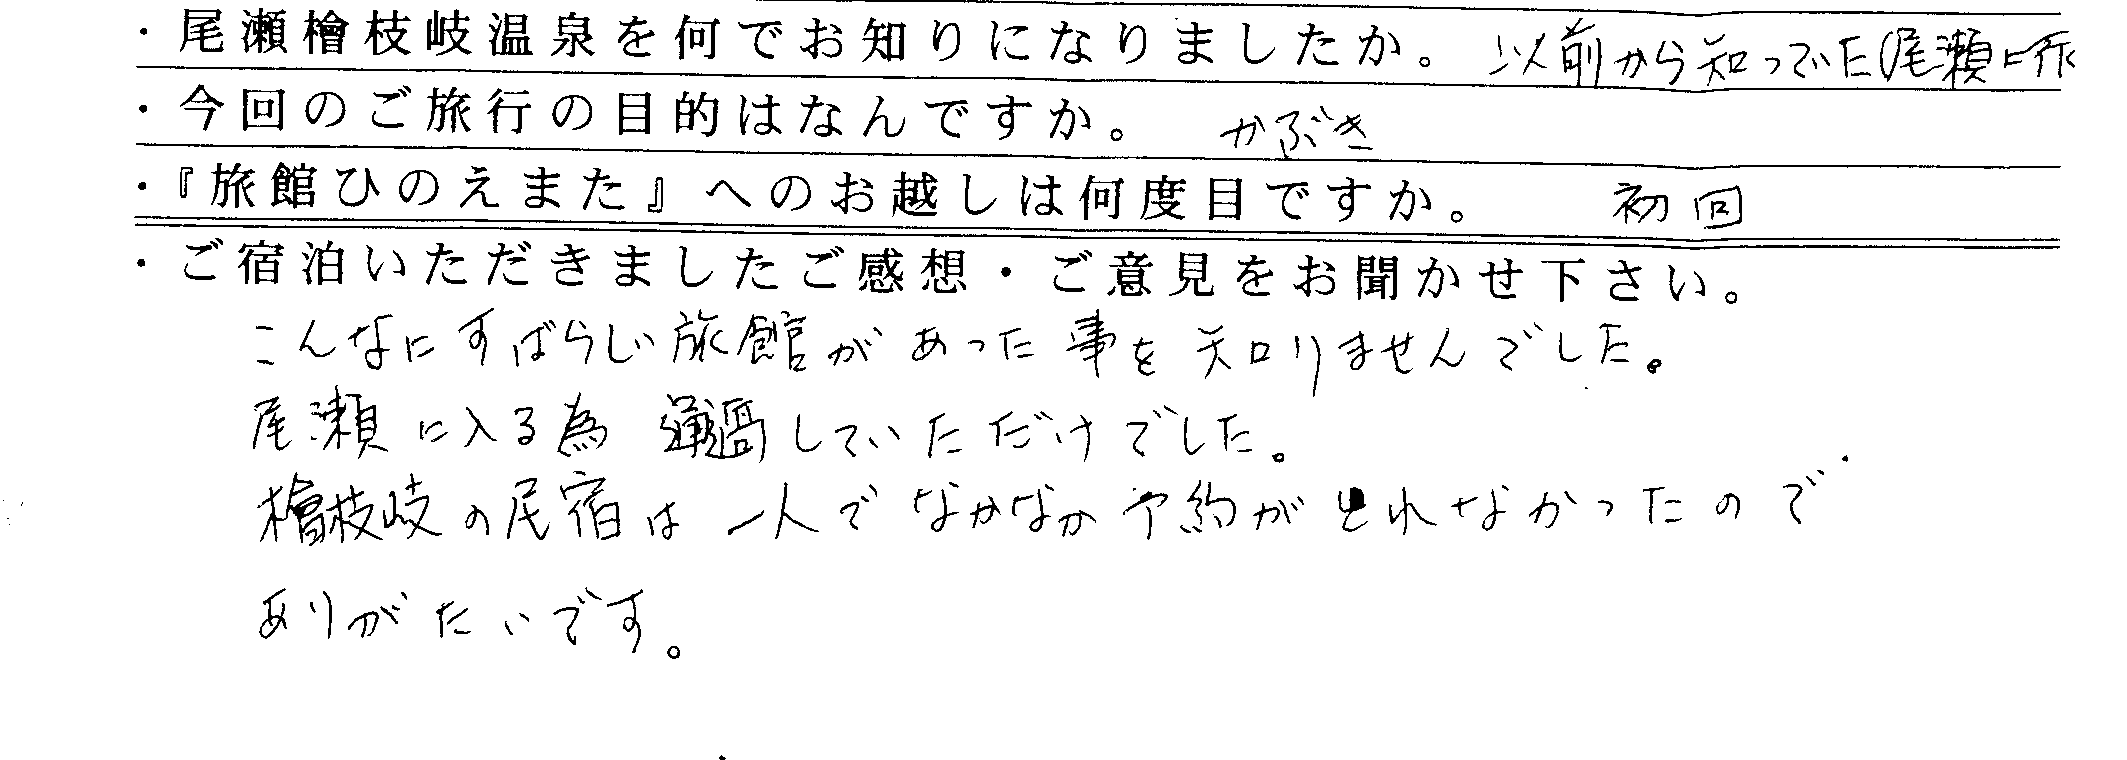 ・尾瀬檜枝岐温泉を何でお知りになりましたか。 以前から知っていた(尾瀬に
・今回のご旅行の目的はなんですか。 かぶき
・『旅館ひのえまた』へのお越しは何度目ですか。 初回
・ご宿泊いただきましたご感想・ご意見をお聞かせ下さい。
こんなにすばらしい旅館があった事を知りませんでした。
尾瀬に入る為 通過していただけでした。
檜枝岐の民宿は一人でなかなか予約がとれなかったので
ありがたいです。